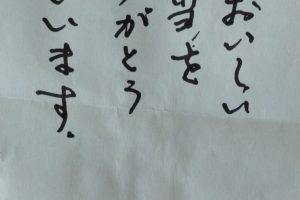 おいしい
当を
がとう
います。